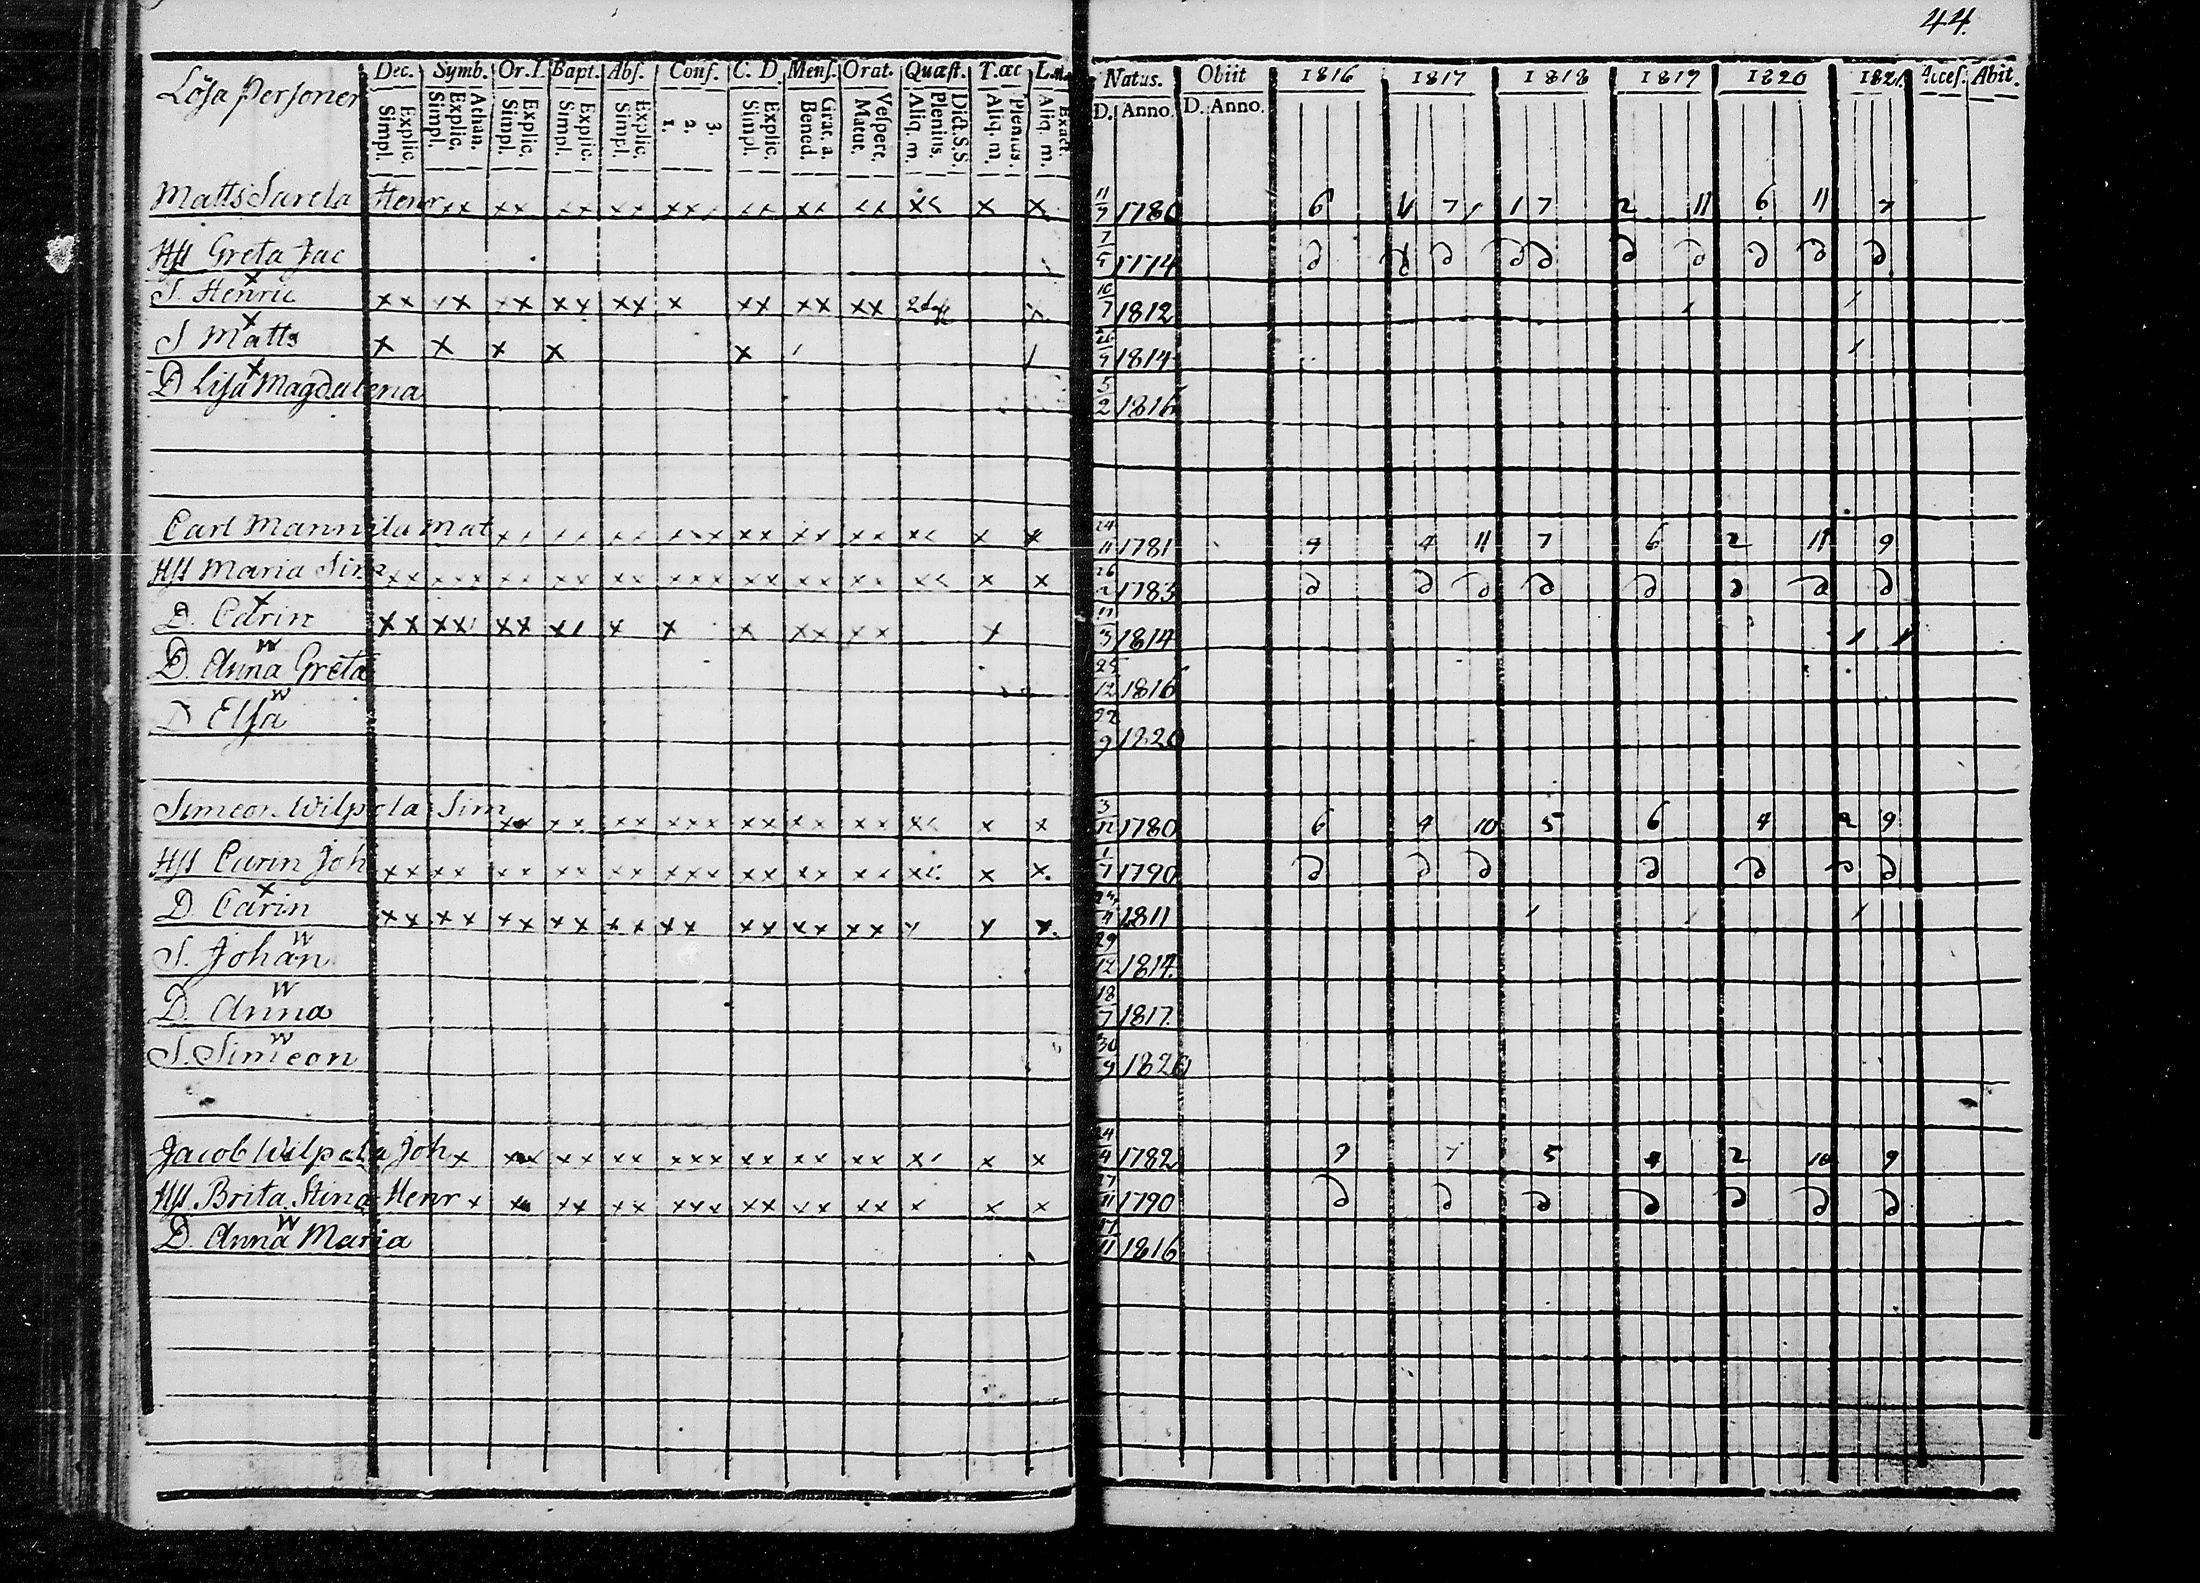 44.
Lösa Personer Dec. Symb. Or. D. Bapt. Abs. Conf. C. D. Mens. Orat. Quæst. T. œc Natus. Obiit 1816 1817 1818 1819 1820 1821. Acces. Abit.
Explic. Simpl. Athan. Explic. Simpl. Explic. Simpl. Explic. Simpl. Explic. Simpl. 3. 2. 1. Explic. Simpl. Grat. a. Bened. Vespere. Matut. Dict. S. S. Plenius. Aliq. m. Plenius. Aliq. m. Exact. Aliq. m. D. Anno. D. Anno.
Matts Sarela Henr xx xx xx xx xx xx xx xx x x 11/9 1780 6 7 1 7 2 11 6 11 7
Hst Greta Jac 7/9 1774
S. Henric xx xx xx xx xx x xx xx xx 10/7 1812
S Matts x x x x x 1814
D Lisa Magdalena 5/2 1816
Carl Mannila Mat xx xx xx xxx xx xx xx x x 24/11 1781 4 4 11 7 6 2 11 9
Hst Maria Sim xx xxx xx xx xx xxx xx xx xx x x 26/2 1783
D. Carin xx xx xx x x x x xx xx x 3 1814
D. Anna Greta 25/12 1816
D Elsa 22/9 1820
Simeon Wilpola Sim xx xx xx xxx xx xx xx x x 3/12 1780 6 4 10 5 6 4 2 9
Hst Carin Joh xx xx xx xx xx xxx xx xx xx x x 1/7 1790
D. Carin xx xx xx xx xx xx xx xx xx 1811
S. Johan 29/12 1814
D. Anna 18/7 1817
S. Simeon 30/9 1820
Jacob Wilpola Joh x xx xx xxx xx xx xx x x 24/4 1782 9 7 5 4 2 10 9
Hst. Brita Stina Henr x xx xx xxx xx xx xx x x x 17/11 1790
D. Anna Maria 11 1816